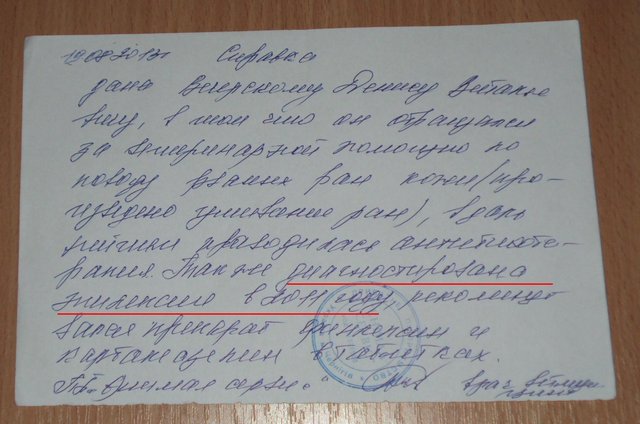 19.08.2013г. Справка
дана Вечерскому Денису Виталье
вичу, в том что он обращался
за ветеринарной помощью по
поводу рваных ран кожи (про-
изведено ушивание ран), в даль
нейшем проводилась антибиоте-
рапия. Также диагностирована
эпилепсия в 2011 году, рекоменд
вался препарат финлепсин и
карбамазепин в таблетках.
врач